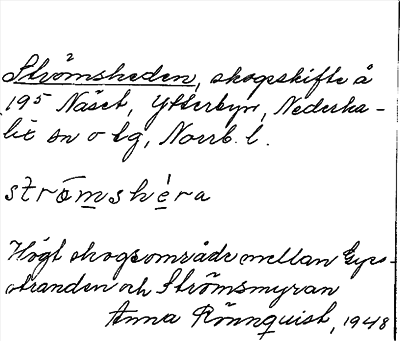 Strömsheden, skogsskifte å
19⁵ Näset, Ytterbyn, Nederka-
lix sn o tg, Norrb. l.
strömshéra
Högt skogsområde mellan Gyrs-
stranden och Strömsmyran
Anna Rönnquist, 1948